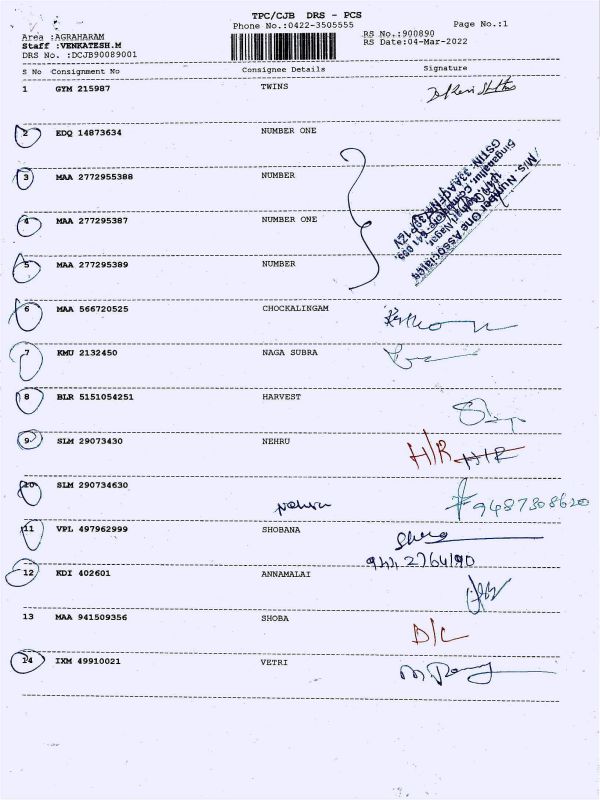 TPC/CJB DRS - PCS
Phone No.:0422-3505555
Page No.:1
Area :AGRAHARAM
Staff :VENKATESH.M
DRS No. :DCJB90089001
RS No.:900890
RS Date:04-Mar-2022
S No Consignment No Consignee Details Signature
1 GYM 215987 TWINS
2 EDQ 14873634 NUMBER ONE
3 MAA 2772955388 NUMBER
4 MAA 277295387 NUMBER ONE
5 MAA 277295389 NUMBER
M/s. Number One Associates
Singanallur, Coimbatore-641 005.
6 MAA 566720525 CHOCKALINGAM
7 KMU 2132450 NAGA SUBRA
8 BLR 5151054251 HARVEST
9 SLM 29073430 NEHRU H/R H/R
10 SLM 290734630
9487308620
11 VPL 497962999 SHOBANA
12 KDI 402601 ANNAMALAI
13 MAA 941509356 SHOBA D/C
14 IXM 49910021 VETRI